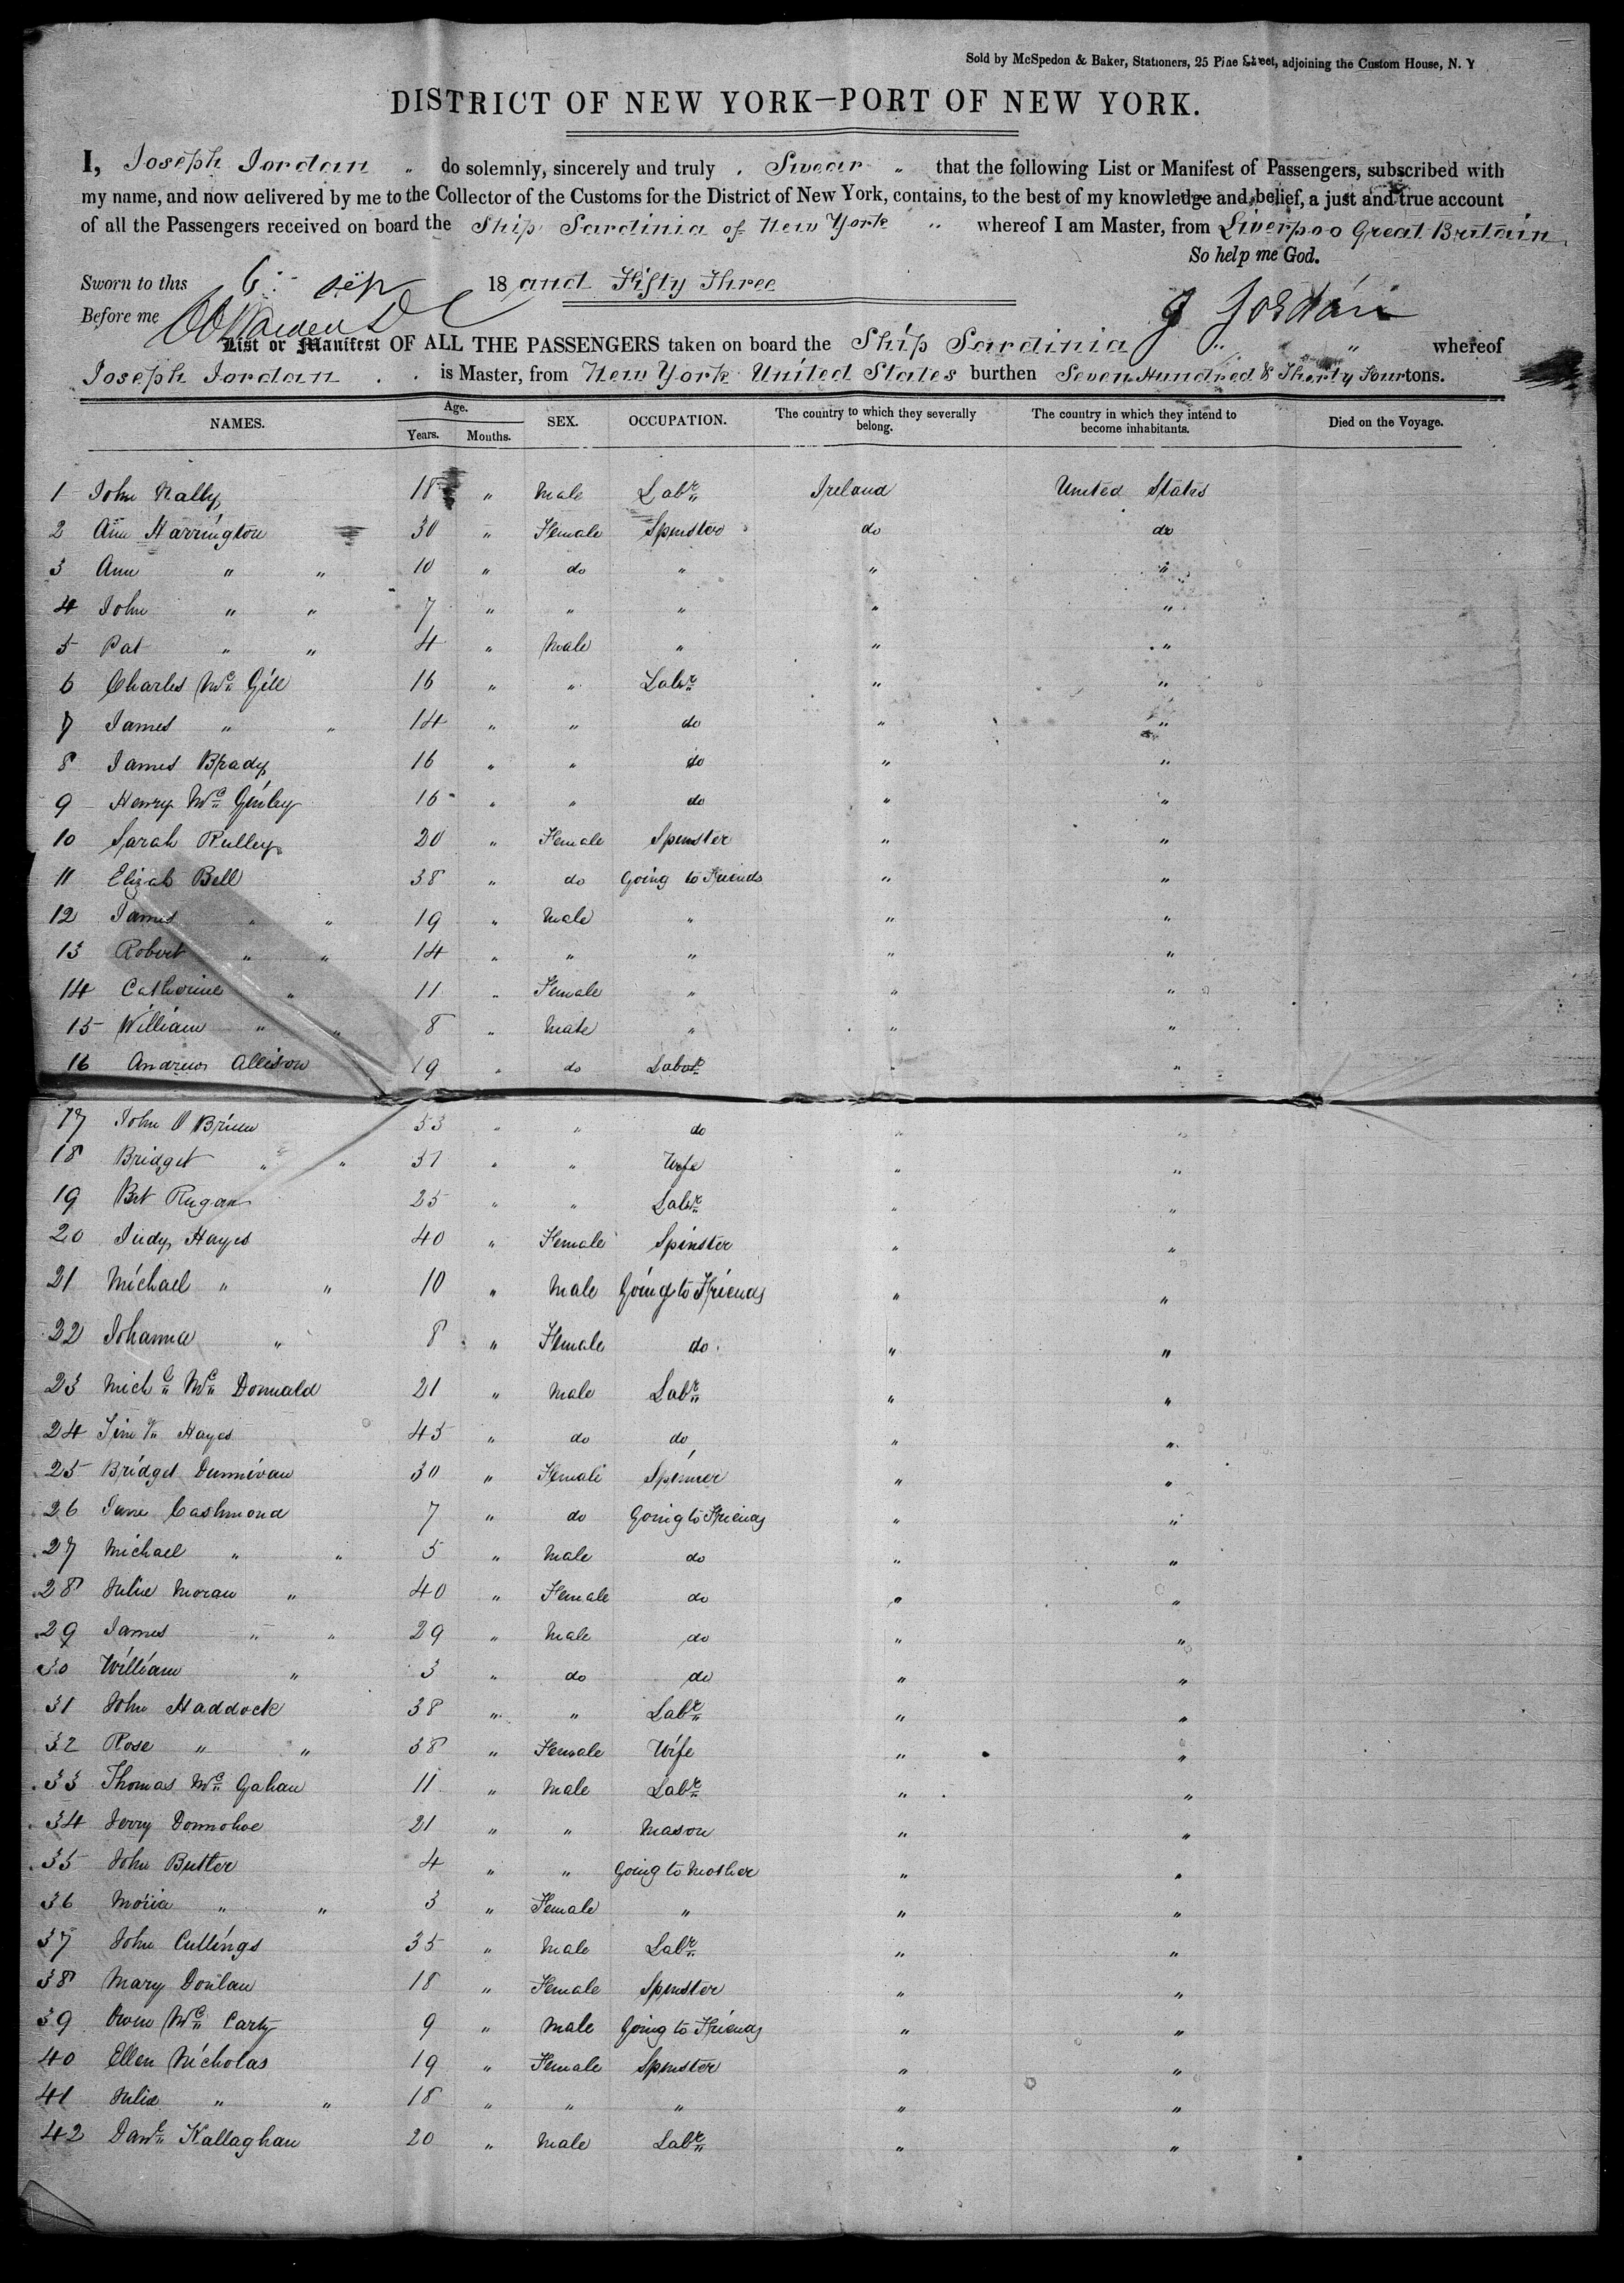 Sold by McSpedon & Baker, Stationers, 25 Pine Street, adjoining the Custom House, N. Y
DISTRICT OF NEW YORK—PORT OF NEW YORK.
I, Joseph Jordan " do solemnly, sincerely and truly . Swear " that the following List or Manifest of Passengers, subscribed with
my name, and now delivered by me to the Collector of the Customs for the District of New York, contains, to the best of my knowledge and belief, a just and true account
of all the Passengers received on board the Ship Sardinia of New York " whereof I am Master, from Liverpoo Great Britain
So help me God.
Sworn to this 6 18 and Fifty Three
Before me J Jordan
List or Manifest OF ALL THE PASSENGERS taken on board the Ship Sardinia " " whereof
Joseph Jordan . . is Master, from New York United States burthen Seven Hundred & Thirty Four tons.
NAMES. Age. Years. Months. SEX. OCCUPATION. The country to which they severally belong. The country in which they intend to become inhabitants. Died on the Voyage.
1 John Nally 18 " Male Labr Ireland United States
2 Ann Harrington 30 " Female Spinster do do
3 Ann " " 10 " do " " "
4 John " " 7 " " " " "
5 Pat " " 4 " Male " " "
6 Charles Mc Gill 16 " " Labr " "
7 James " " 14 " " do " "
8 James Brady 16 " " do " "
9 Henry Mc Ginley 16 " " do " "
10 Sarah Rulley 20 " Female Spinster " "
11 Elizab Bell 38 " do Going to Friends " "
12 James " " 19 " Male " " "
13 Robert " " 14 " " " " "
14 Catherine " 11 " Female " " "
15 William " " 8 " Male " " "
16 Andrew Allison 19 " do Labor " "
17 John O Brien 53 " " do " "
18 Bridget " " 51 " " Wife " "
19 Pat Rugan 25 " " Labr " "
20 Judy Hayes 40 " Female Spinster " "
21 Michael " " 10 " Male Going to Friends " "
22 Johanna " 8 " Female do " "
23 Michl Mc Donnald 21 " Male Labr " "
24 Hayes 45 " do do " "
25 Bridget Dunnivan 30 " Female Spinner " "
26 Jane Cashmond 7 " do Going to Friends " "
27 Michael " " 5 " Male do " "
28 Julie Moran " 40 " Female do " "
29 James " " 29 " Male do " "
30 William " 3 " do do " "
31 John Haddock 38 " " Labr " "
32 Rose " " 38 " Female Wife " "
33 Thomas Mc Gahan 11 " Male Labr " "
34 Jerry Donnohoe 21 " " Mason " "
35 John Butler 4 " " Going to Mother " "
36 Moria " " 3 " Female " " "
37 John Cullings 35 " Male Labr " "
38 Mary Donlan 18 " Female Spinster " "
39 Owen Mc Carty 9 " Male Going to Friends " "
40 Ellen Nicholas 19 " Female Spinster " "
41 Julia " " 18 " " " " "
42 Danl Kallaghan 20 " Male Labr " "